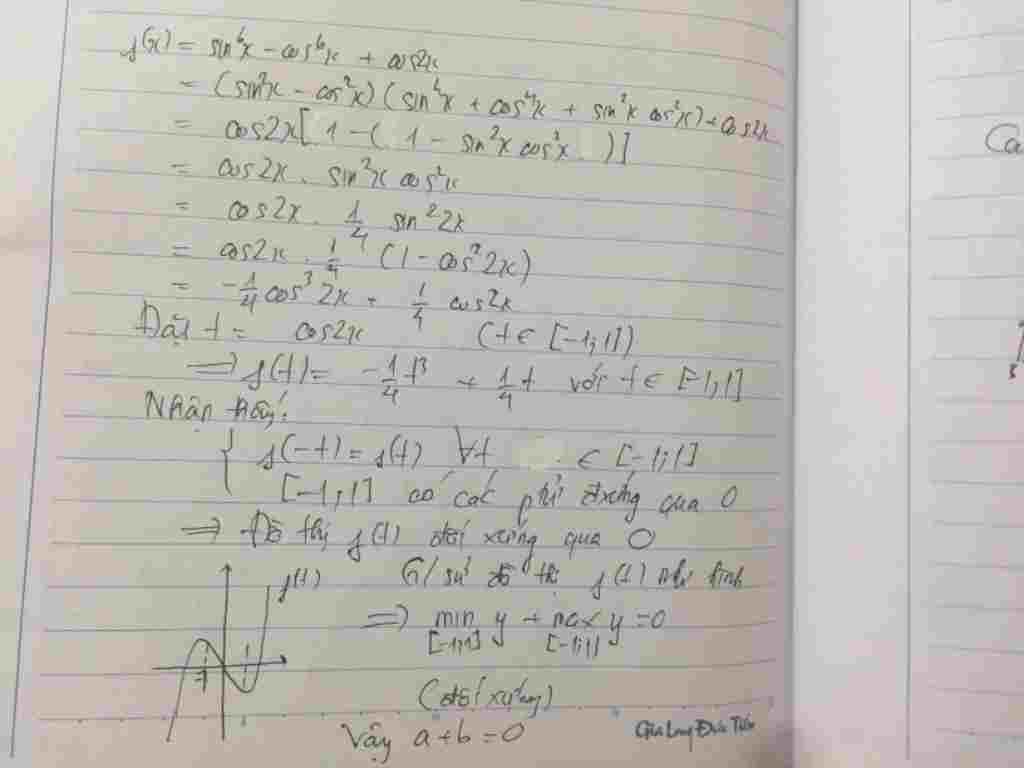 f(x) = sin⁶x - cos⁶x + cos2x
= (sin²x - cos²x)(sin⁴x + cos⁴x + sin²x cos²x) + cos2x
= cos2x[1 - (1 - sin²x cos²x)]
= cos2x . sin²x cos²x
= cos2x . 1/4 sin²2x
= cos2x . 1/4 (1 - cos²2x)
= -1/4 cos³2x + 1/4 cos2x
Đặt t = cos2x (t ∈ [-1;1])
=> f(t) = -1/4 t³ + 1/4 t với t ∈ [-1;1]
Nhận thấy:
{ f(-t) = f(t) ∀t ∈ [-1;1]
[-1;1] có các đxứng qua 0
=> Đồ thị f(t) đối xứng qua O
f(t) G/sử đồ thị f(t) như hình
=> min y + max y = 0
[-1;1] [-1;1]
(đối xứng)
Vậy a+b=0
Gia Long Đức Tiến
Ca